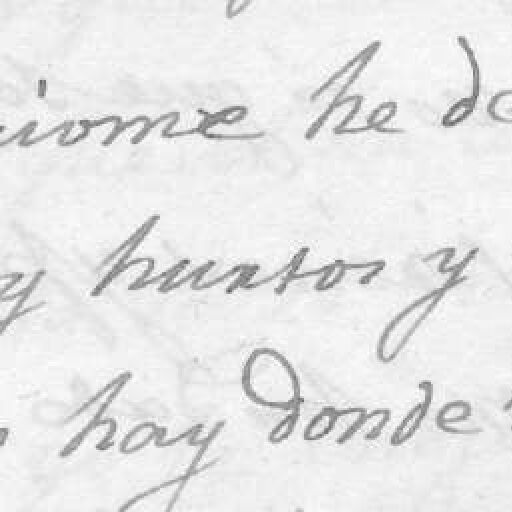 iome he de
y hurtos y
hay donde